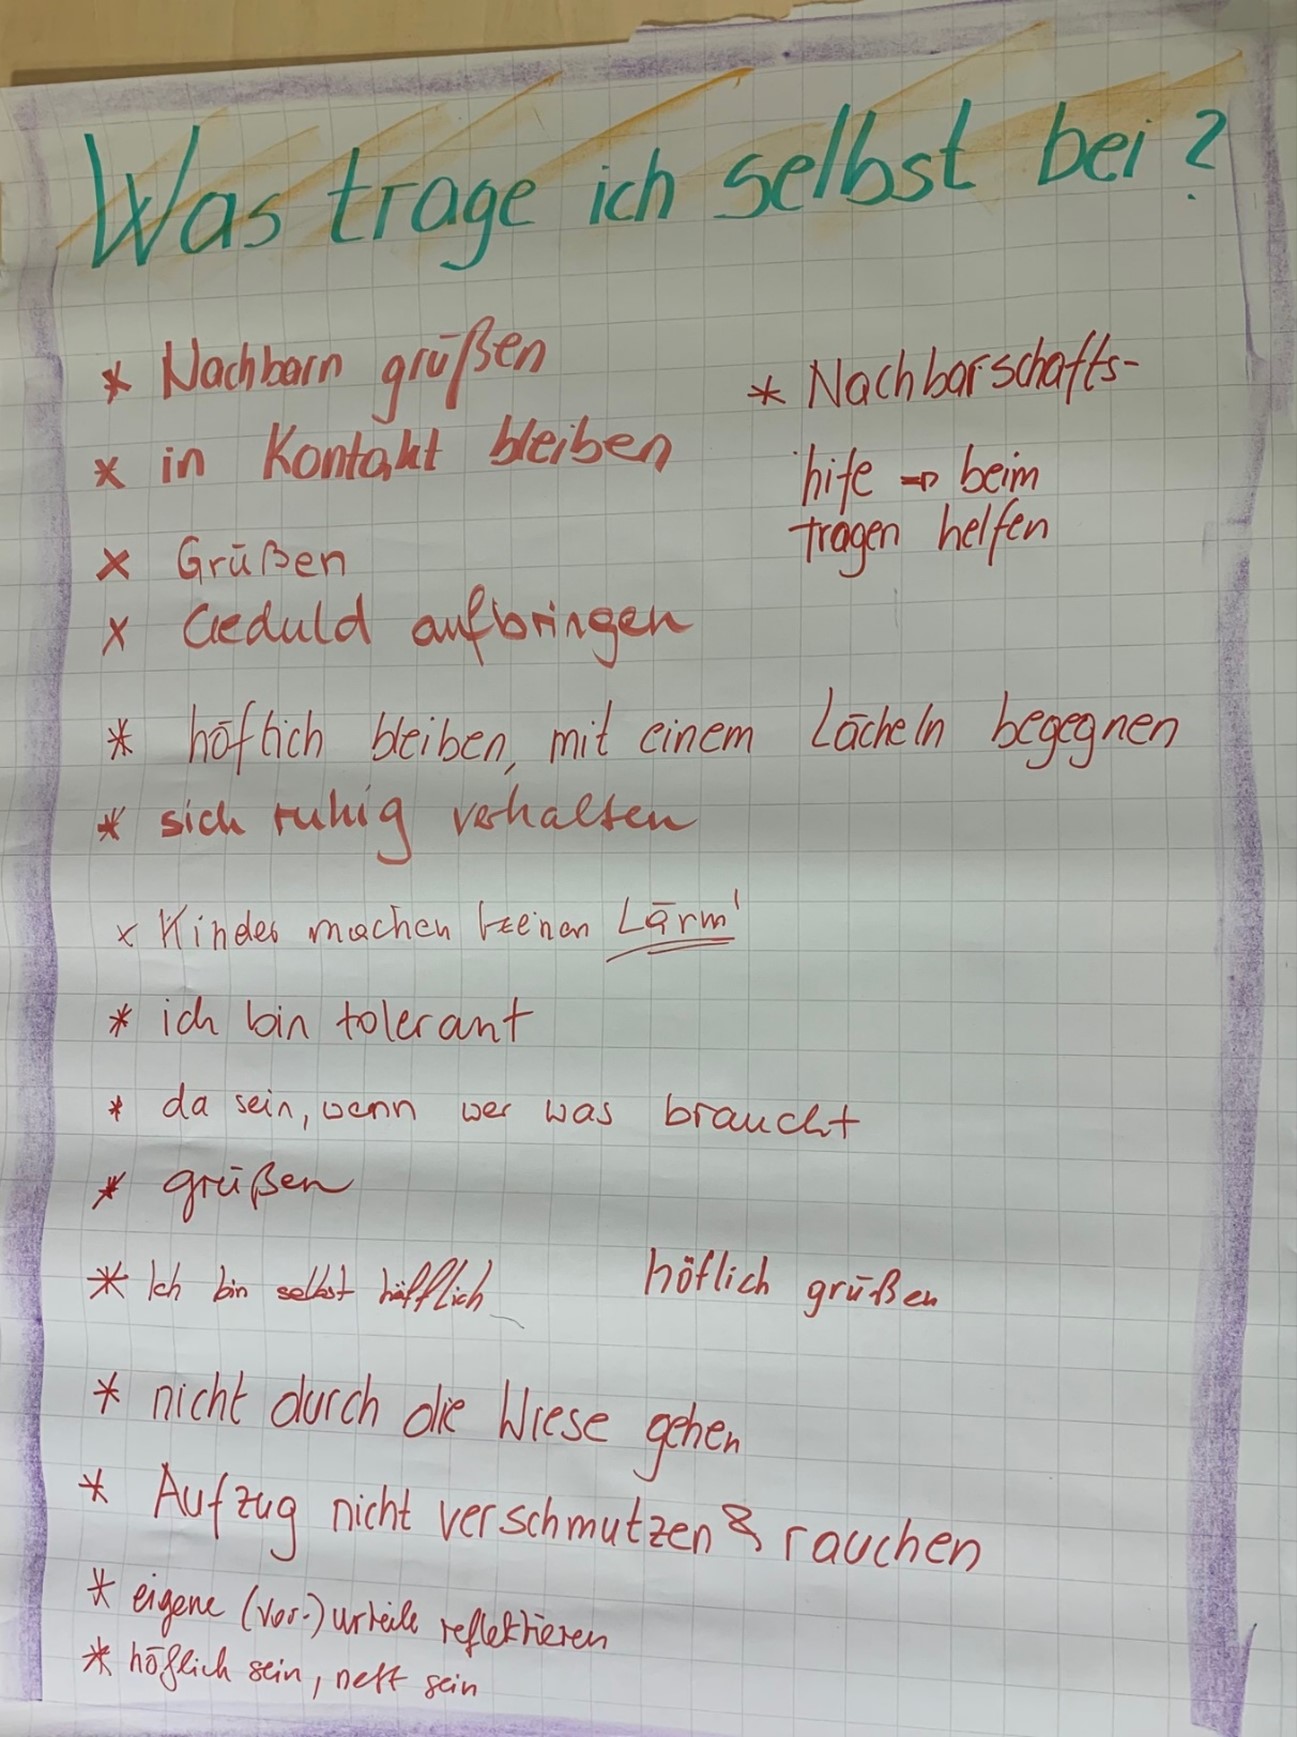 Was trage ich selbst bei?
* Nachbarn grüßen
* in Kontakt bleiben
* Nachbarschafts-
hife => beim
tragen helfen
x Grüßen
x Geduld aufbringen
* höflich bleiben, mit einem Lächeln begegnen
* sich ruhig verhalten
x Kinder machen keinen Lärm!
* ich bin tolerant
* da sein, wenn wer was braucht
* grüßen
* Ich bin selbst höfflich
höflich grüßen
* nicht durch die Wiese gehen
* Aufzug nicht verschmutzen & rauchen
* eigene (Vor-)urteile reflektieren
* höflich sein, nett sein